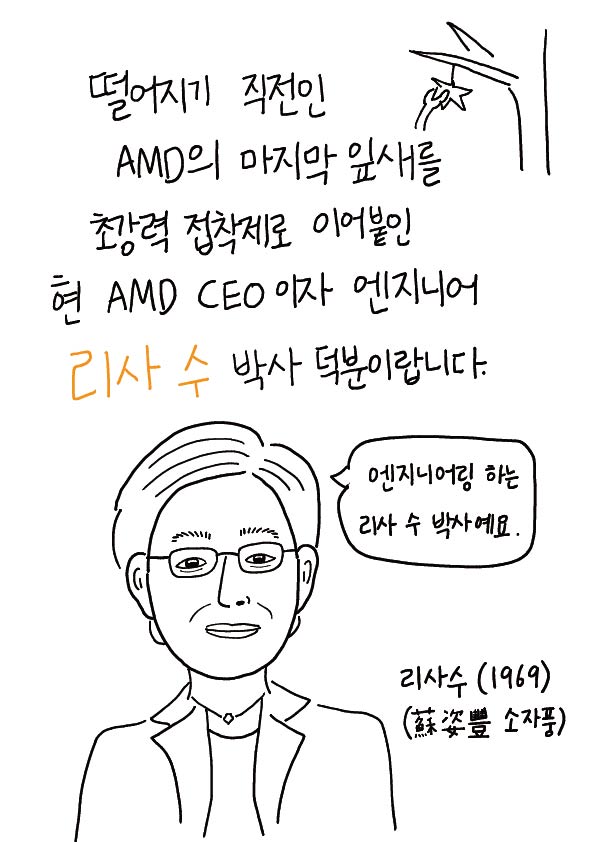 떨어지기 직전인
AMD의 마지막 잎새를
초강력 접착제로 이어붙인
현 AMD CEO이자 엔지니어
리사 수 박사 덕분이랍니다.
엔지니어링 하는
리사 수 박사예요.
리사수 (1969)
(蘇姿豐 소자풍)